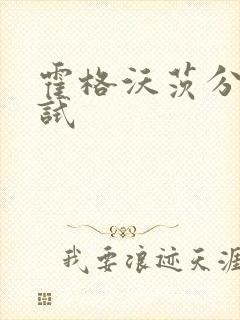 霍格沃茨分
試
我要浪迹天涯